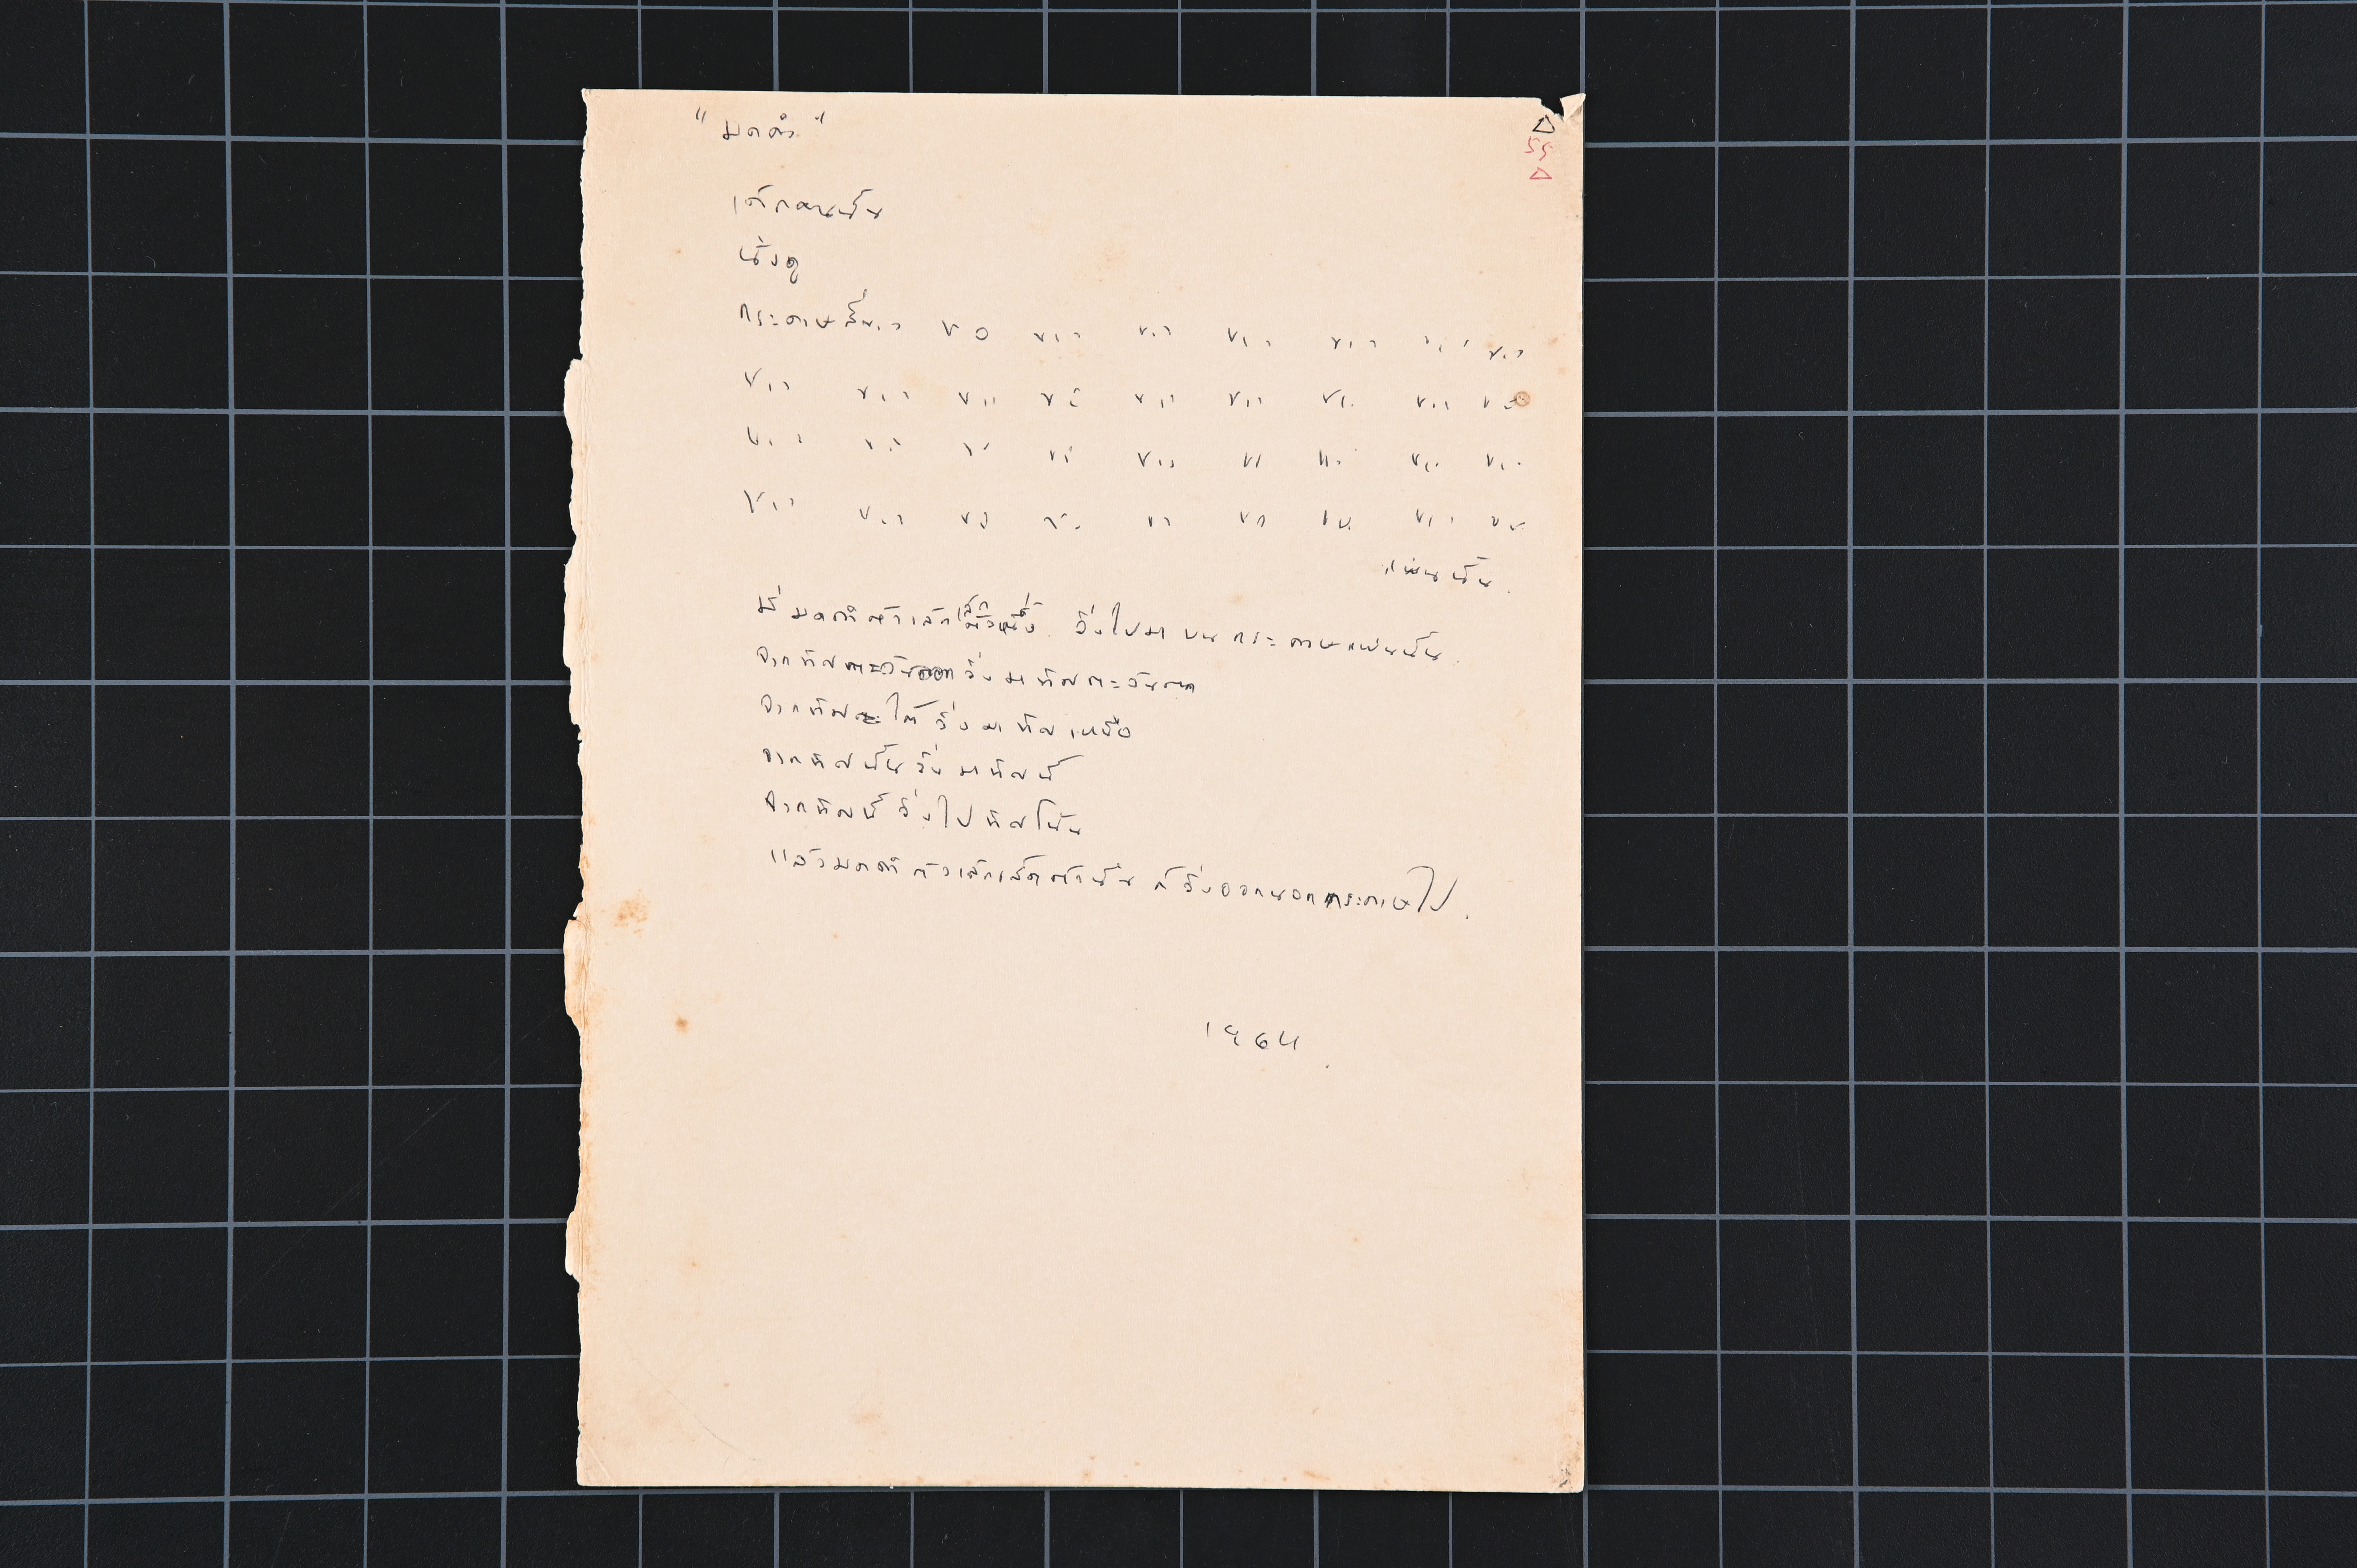 "มดดำ"
Δ
55
Δ
เด็กคนนั้น
นั่งดู
กระดาษสีขาว ขาว ขาว ขาว ขาว ขาว ขาว ขาว
ขาว ขาว ขาว ขาว ขาว ขาว ขาว ขาว ขาว
ขาว ขาว ขาว ขาว ขาว ขาว ขาว ขาว ขาว
ขาว ขาว ขาว ขาว ขาว ขาว ขาว ขาว ขาว
แผ่นนั้น.
มีมดดำตัวเล็กเล็กตัวหนึ่ง วิ่งไปมาบนกระดาษแผ่นนั้น.
จากทิศตะวันออกวิ่งมาทิศตะวันตก
จากทิศใต้วิ่งมาทิศเหนือ
จากทิศนั้นวิ่งมาทิศนี้
จากทิศนี้วิ่งไปทิศโน้น
แล้วมดดำตัวเล็กเล็กตัวนั้น ก็วิ่งออกนอกกระดาษไป.
1964.